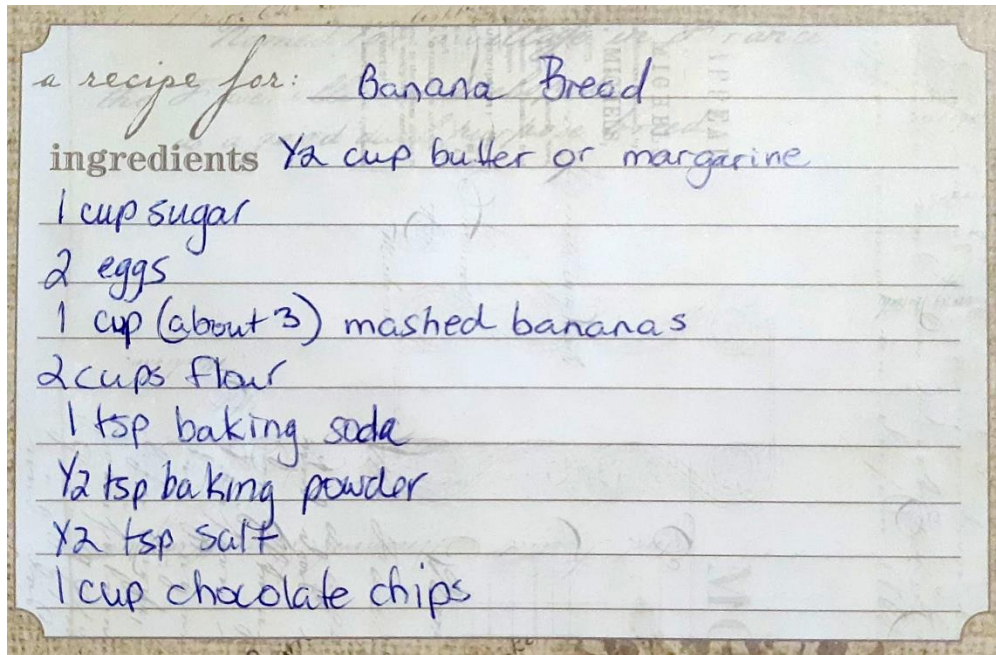 a recipe for: Banana Bread
ingredients 1/2 cup butter or margarine
1 cup sugar
2 eggs
1 cup (about 3) mashed bananas
2 cups flour
1 tsp baking soda
1/2 tsp baking powder
1/2 tsp salt
1 cup chocolate chips